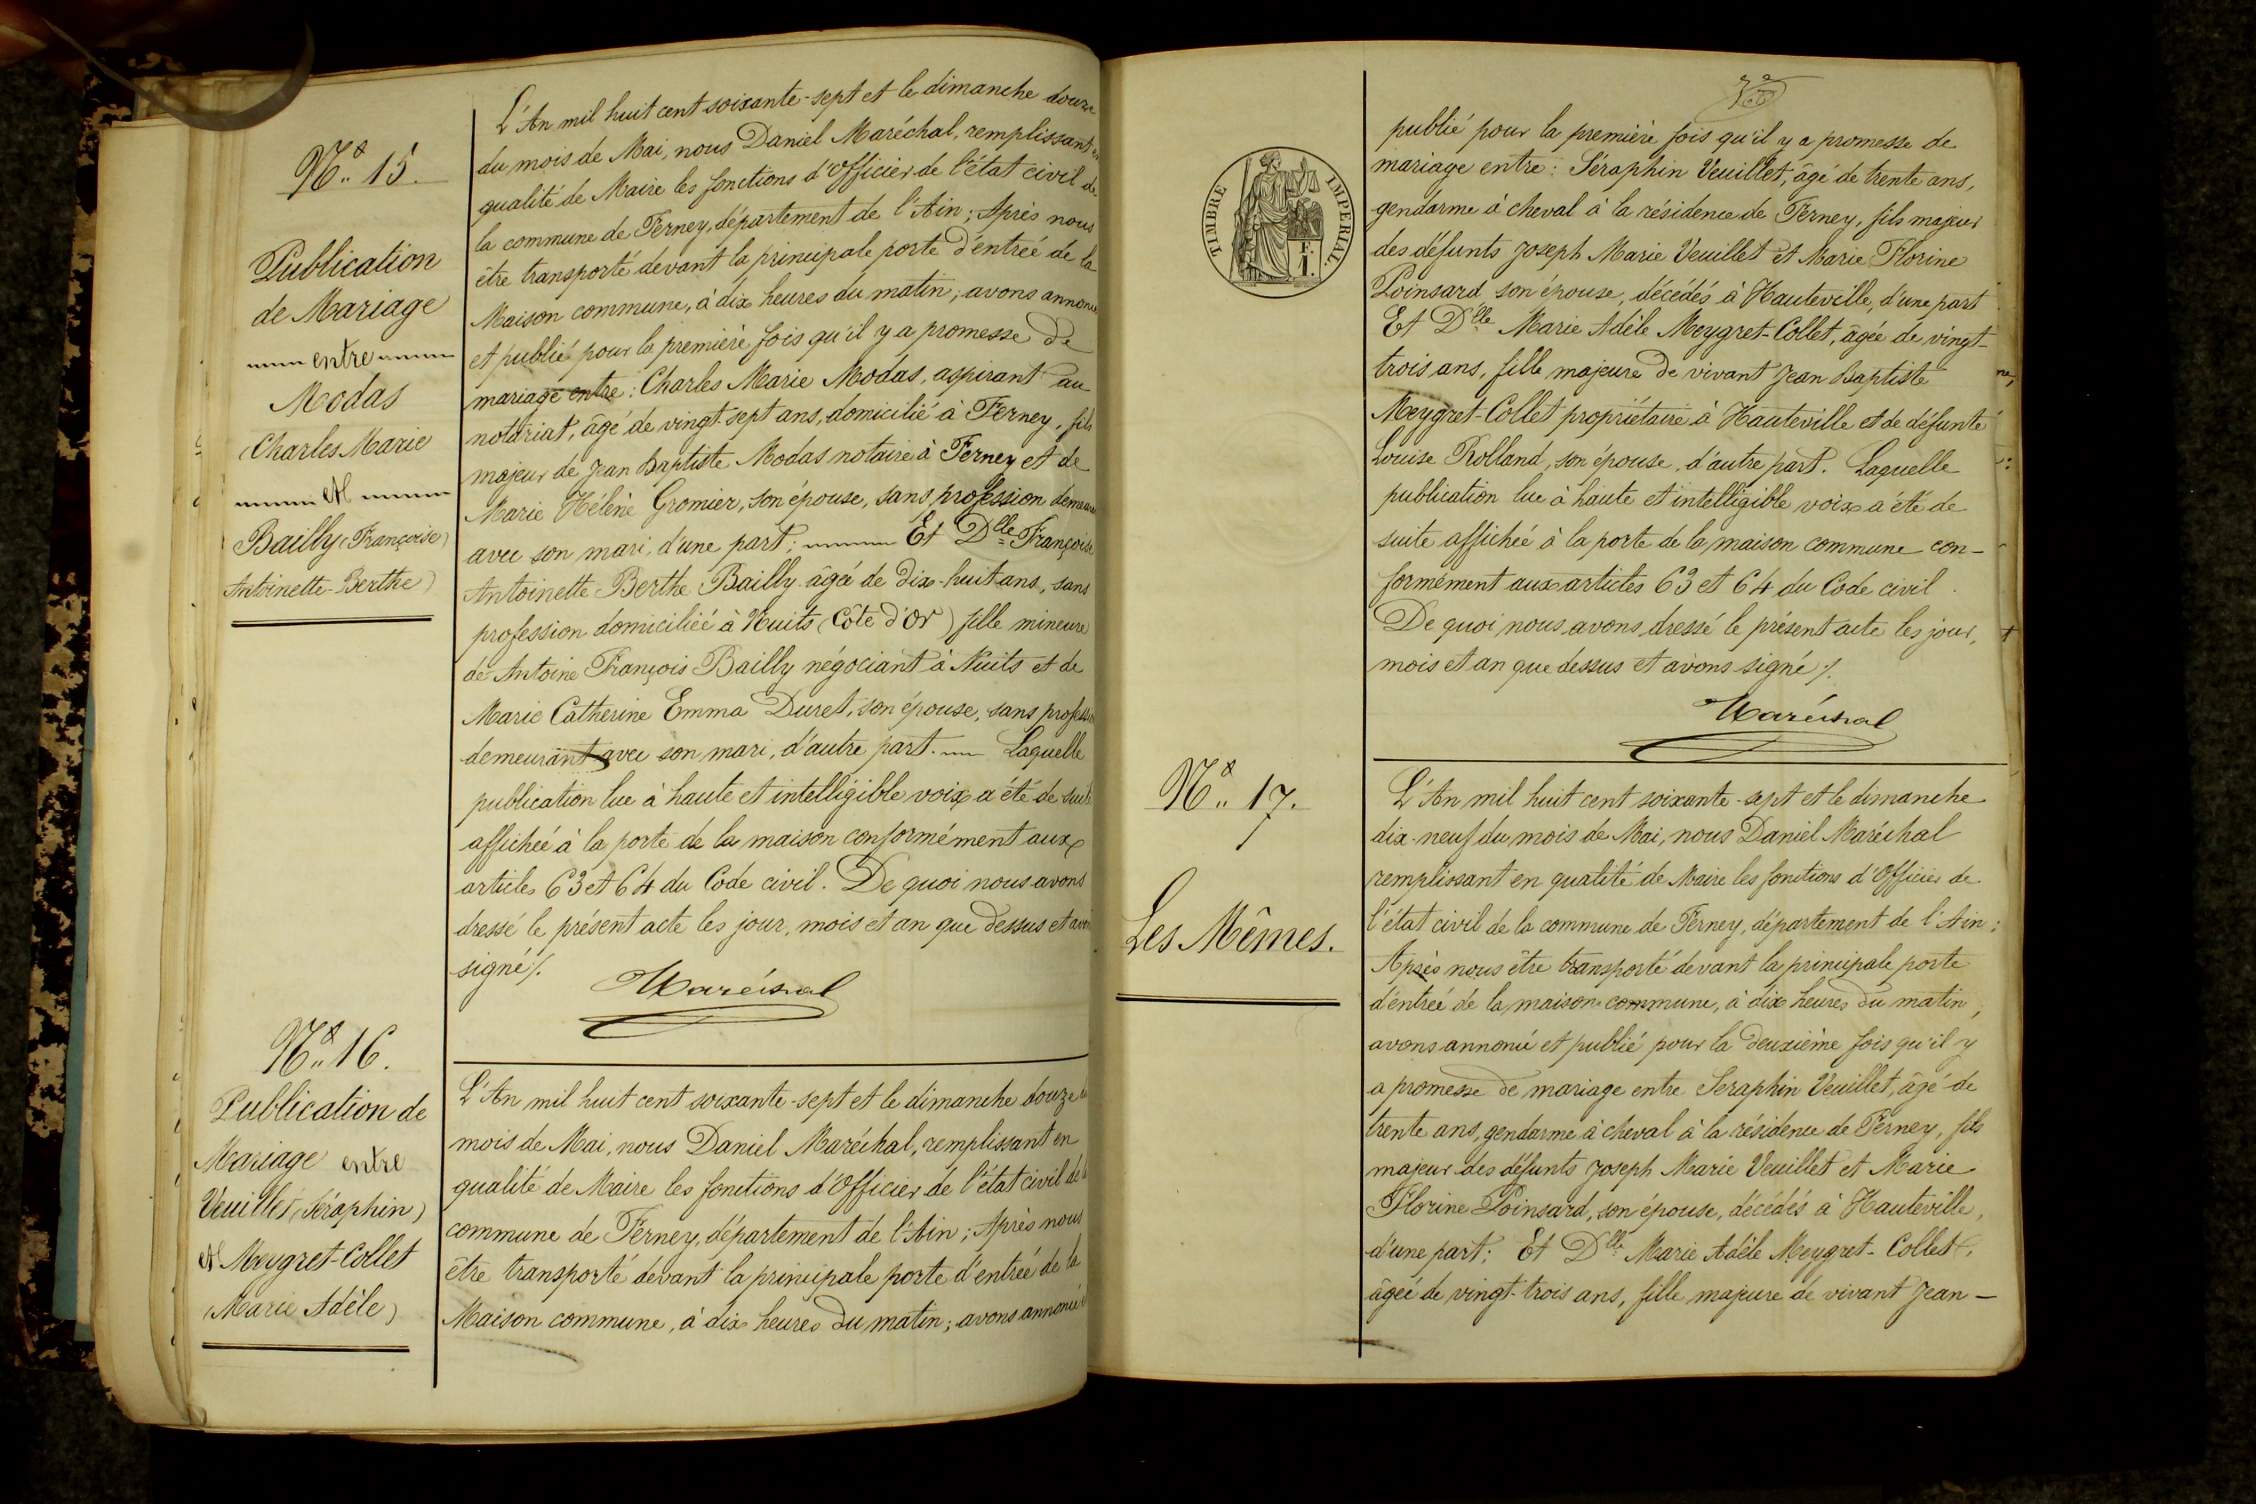 N.º 15.
Publication
de Mariage
entre
Modas
Charles Marie
et
Bailly (Françoise
Antoinette-Berthe)
L'An mil huit cent soixante-sept et le dimanche douze
du mois de Mai, nous Daniel Maréchal, remplissant en
qualité de Maire les fonctions d'Officier de l'état civil de
la commune de Ferney, département de l'Ain; Après nous
être transporté devant la principale porte d'entrée de la
Maison commune, à dix heures du matin; avons annoncé
et publié pour la première fois qu'il y a promesse de
mariage entre: Charles Marie Modas, aspirant au
notariat, âgé de vingt-sept ans, domicilié à Ferney, fils
majeur de Jean Baptiste Modas notaire à Ferney et de
Marie Hélène Gromier, son épouse, sans profession demeurant
avec son mari, d'une part; Et Dlle Françoise
Antoinette-Berthe Bailly âgée de dix-huit ans, sans
profession domiciliée à Nuits (Côte d'Or) fille mineure
de Antoine François Bailly négociant à Nuits et de
Marie Catherine Emma Duret, son épouse, sans profession
demeurant avec son mari, d'autre part. Laquelle
publication lue à haute et intelligible voix a été de suite
affichée à la porte de la maison conformément aux
articles 63 et 64 du Code civil. De quoi nous avons
dressé le présent acte les jour, mois et an que dessus et avons
signé ./.
Maréchal
N.º 16.
Publication de
Mariage entre
Veuillet (Séraphin)
et Meygret-Collet
(Marie Adèle)
L'An mil huit cent soixante-sept et le dimanche douze du
mois de Mai, nous Daniel Maréchal, remplissant en
qualité de Maire les fonctions d'Officier de l'état civil de la
commune de Ferney, département de l'Ain; Après nous
être transporté devant la principale porte d'entrée de la
Maison commune, à dix heures du matin; avons annoncé et
TIMBRE IMPERIAL.
F.
1.
publié pour la première fois qu'il y a promesse de
mariage entre: Séraphin Veuillet, âgé de trente ans,
gendarme à cheval à la résidence de Ferney, fils majeur
des défunts Joseph Marie Veuillet et Marie Florine
Poinsard, son épouse, décédés à Hauteville, d'une part
Et Dlle Marie Adèle Meygret-Collet, âgée de vingt-
trois ans, fille majeure de vivant Jean Baptiste
Meygret-Collet propriétaire à Hauteville et de défunte
Louise Rolland, son épouse, d'autre part. Laquelle
publication lue à haute et intelligible voix a été de
suite affichée à la porte de la maison commune con-
formément aux articles 63 et 64 du Code civil.
De quoi nous avons dressé le présent acte les jour,
mois et an que dessus et avons signé ./.
Maréchal
N.º 17.
Les Mêmes.
L'An mil huit cent soixante-sept et le dimanche
dix-neuf du mois de Mai, nous Daniel Maréchal
remplissant en qualité de Maire les fonctions d'Officier de
l'état civil de la commune de Ferney, département de l'Ain;
Après nous être transporté devant la principale porte
d'entrée de la maison commune, à dix heures du matin,
avons annoncé et publié pour la deuxième fois qu'il y
a promesse de mariage entre Seraphin Veuillet, âgé de
trente ans, gendarme à cheval à la résidence de Ferney, fils
majeur des défunts Joseph Marie Veuillet et Marie
Florine Poinsard, son épouse, décédés à Hauteville,
d'une part; Et Dlle Marie Adèle Meygret-Collet,
âgée de vingt-trois ans, fille majeure de vivant Jean-